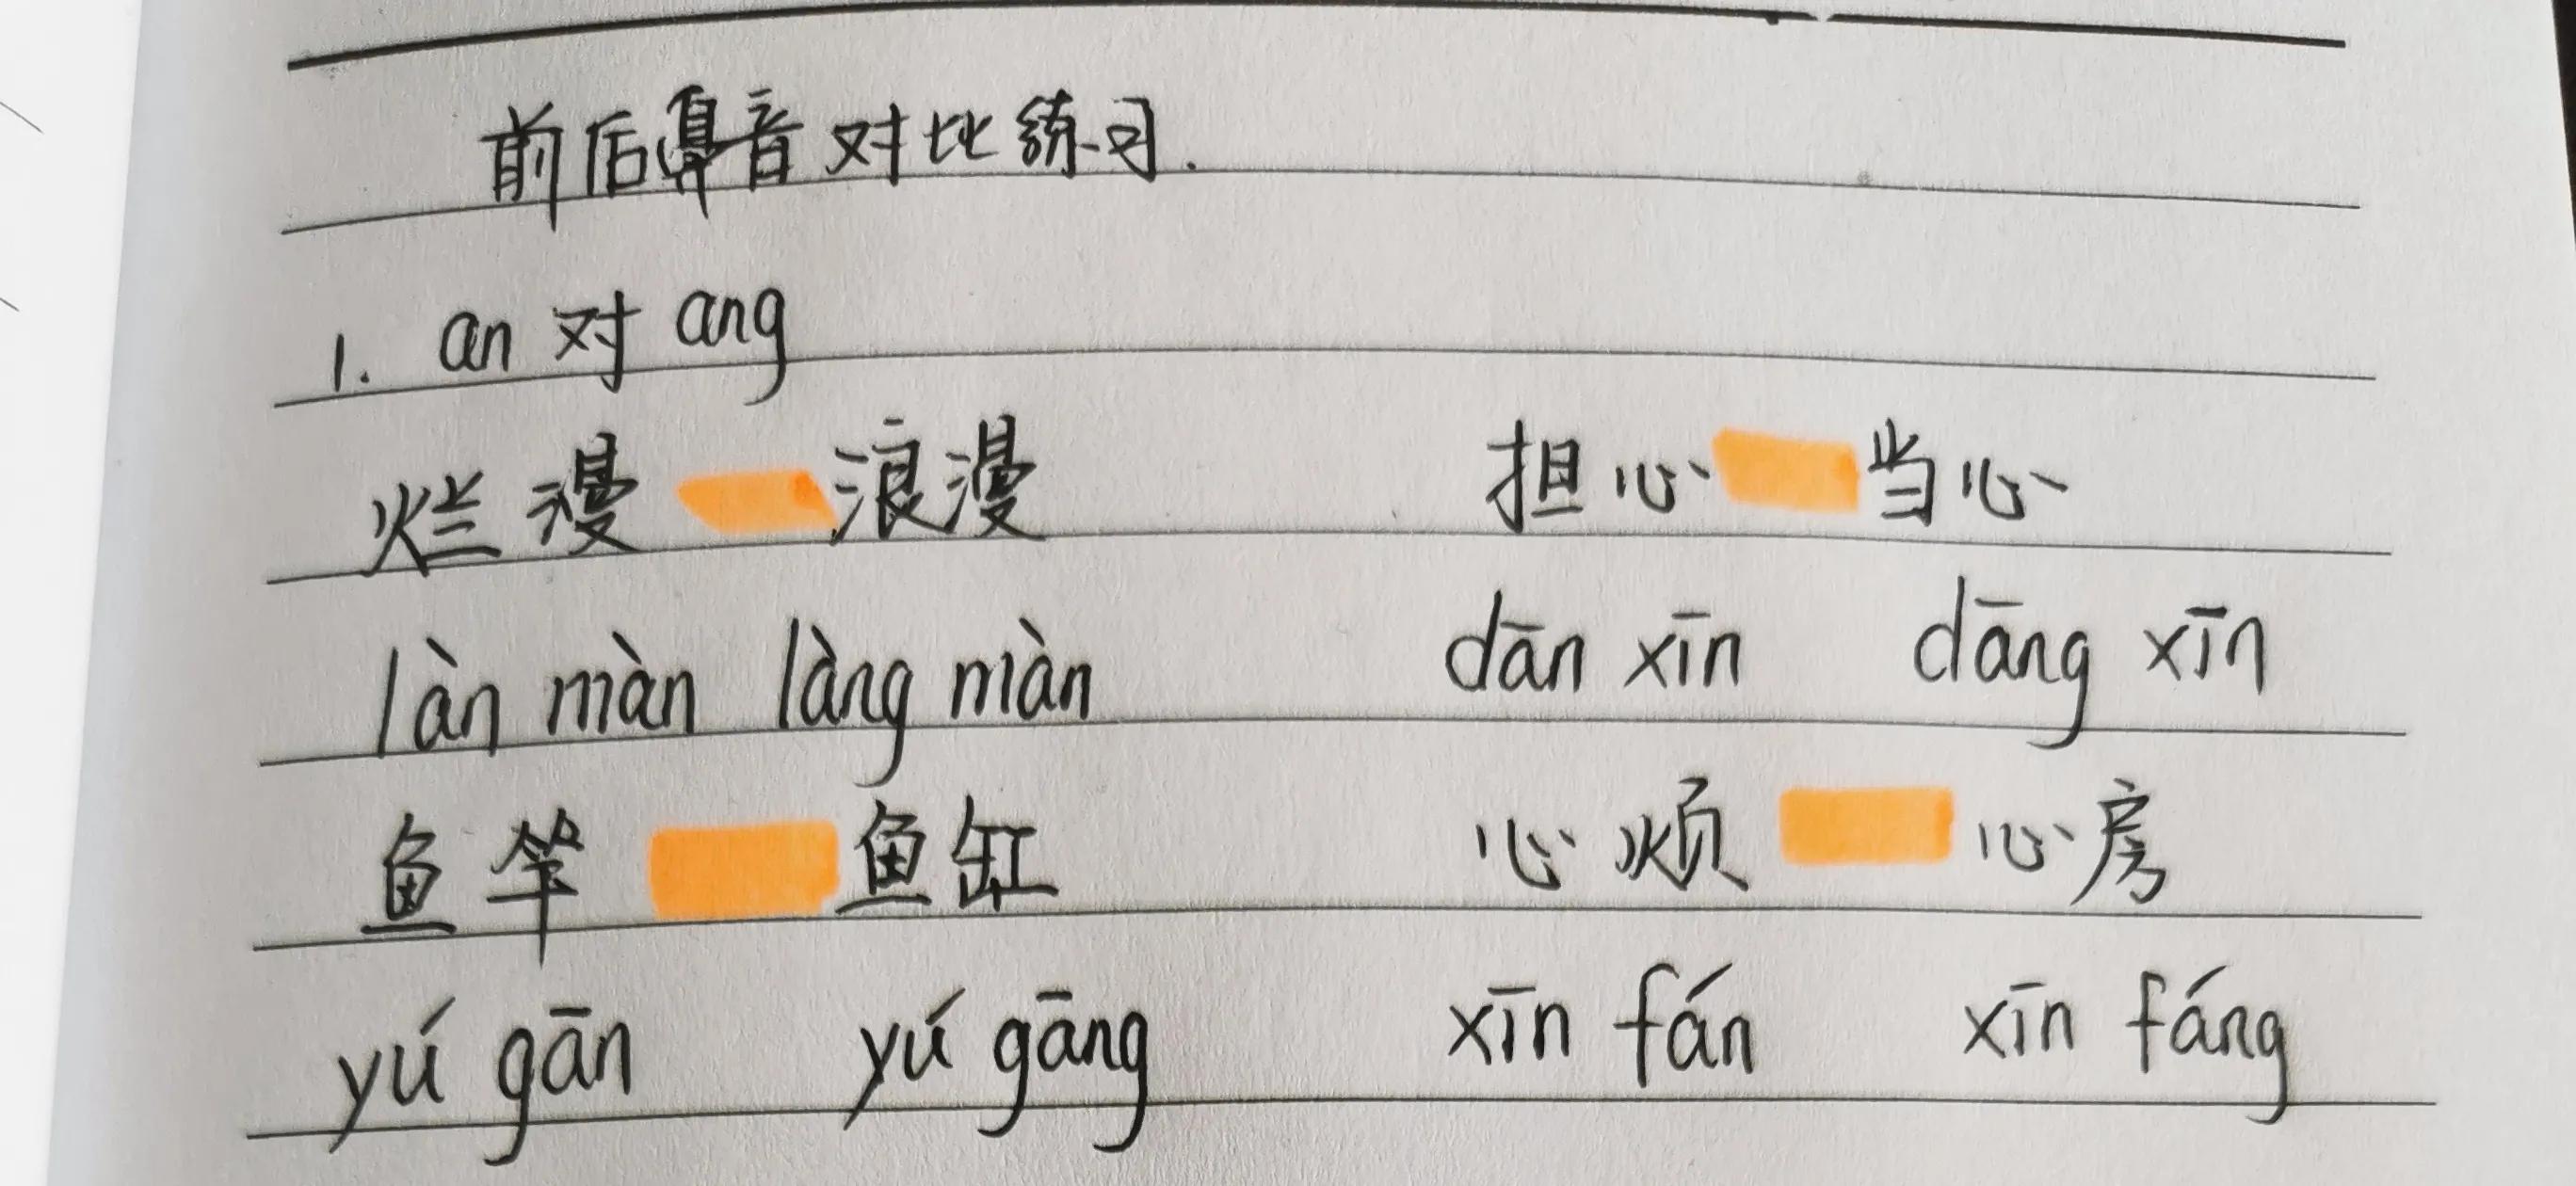 前后鼻音对比练习.
1. an 对 ang
烂漫 浪漫 担心 当心
làn màn làng màn dān xīn dāng xīn
鱼竿 鱼缸 心烦 心房
yú gān yú gāng xīn fán xīn fáng